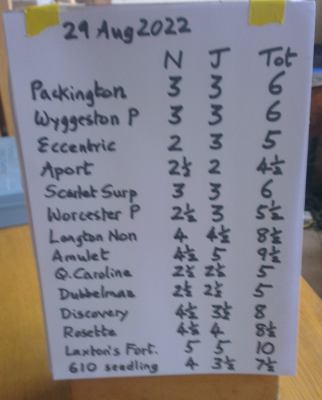 29 Aug 2022
N J Tot
Packington 3 3 6
Wyggeston P 3 3 6
Eccentric 2 3 5
Aport 2½ 2 4½
Scarlet Surp 3 3 6
Worcester P 2½ 3 5½
Langton Non 4 4½ 8½
Amulet 4½ 5 9½
Q. Caroline 2½ 2½ 5
Dubbelman 2½ 2½ 5
Discovery 4½ 3½ 8
Rosette 4½ 4 8½
Laxton's Fort. 5 5 10
610 seedling 4 3½ 7½